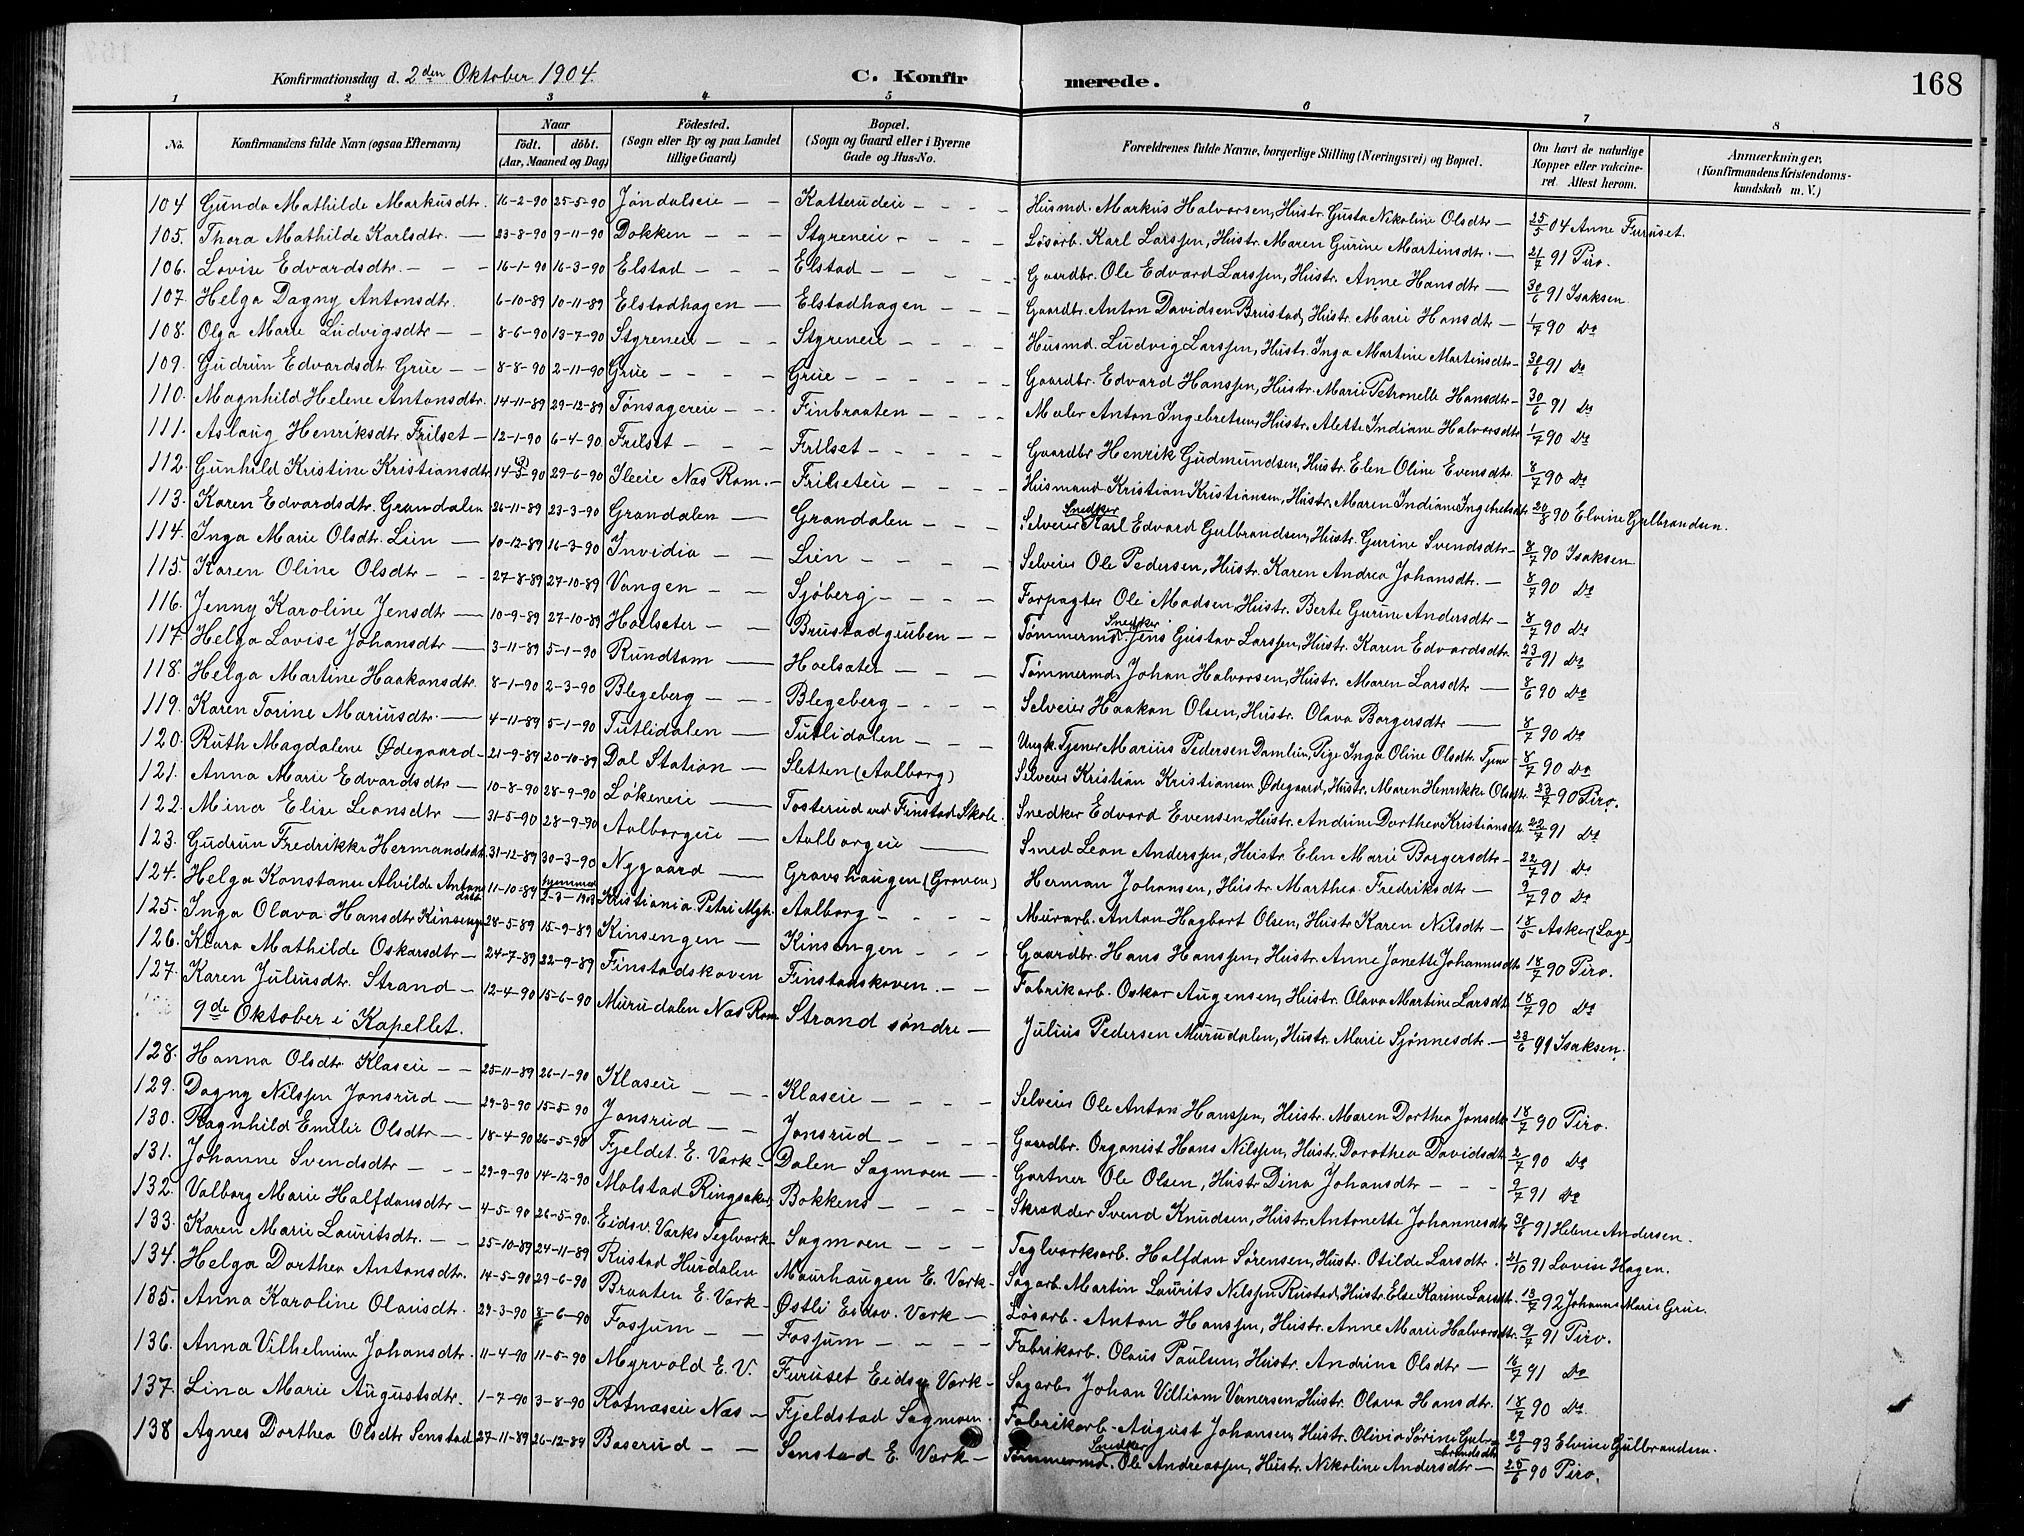 Konfirmationsdag d. 2den Oktober 1904. C. Konfirmerede. 168
1 2 3 4 5 6 7 8
No. Konfirmandens fulde Navn (ogsaa Efternavn) Naar födt. döbt. (Aar, Maaned og Dag) Födested. (Sogn eller By og paa Landet tillige Gaard) Bopæl. (Sogn og Gaard eller i Byerne Gade og Hus-No. Forældrenes fulde Navne, borgerlige Stilling (Næringsvei) og Bopæl. Om havt de naturlige Kopper eller vakcineret. Attest herom. Anmærkninger. (Konfirmandens Kristendomskundskab m. V.)
104 Gunda Mathilde Markusdtr. 16-2-90 25-5-90 Jøndalseie Katterudeie Husmd. Markus Halvorsen, Hustr. Gusta Nikoline Olsdtr 25/5 04 Anne Furuset.
105. Thora Mathilde Karlsdtr. 23-8-90 9-11-90 Dokken Styreneie Løsarb. Karl Larssen, Hustr. Maren Gurine Martinsdtr. 21/7 91 Piro.
106. Lovise Edvardsdtr. 16-1-90 16-3-90 Elstad Elstad Gaardbr. Ole Edvard Larssen, Hustr. Anne Hansdtr 30/6 91 Isaksen
107. Helga Dagny Antonsdtr. 6-10-89 10-11-89 Elstadhagen Elstadhagen Gaardbr. Anton Davidsen Brustad, Hustr. Marie Hansdtr 1/7 90 Do
108. Olga Marie Ludvigsdtr 8-6-90 13-7-90 Styreneie Styreneie Husmd. Ludvig Larssen, Hustr. Inga Martine Martinsdtr 30/6 91 Do
109. Gudrun Edvardsdtr Grue 8-8-90 2-11-90 Grue Grue Gaardbr. Edvard Hanssen, Hustr. Marie Petronelle Hansdtr 30/6 91 Do
110. Magnhild Helene Antonsdtr. 14-11-89 29-12-89 Tønsagereie Finbraaten Maler Anton Ingebretsen, Hustr. Alette Indiane Halvorsdtr 1/7 90 Do
111. Aslaug Henriksdtr. Frilset 12-1-90 6-4-90 Frilset Frilset Gaardbr Henrik Gudmundsen, Hustr. Elen Oline Evensdtr. 8/7 90 Do
112. Gunhild Kristine Kristiansdtr 29-6-90 Ileeie Nas Rom. Frilseteie Husmand Kristian Kristiansen, Hustr. Maren Indiane Ingebretsdtr 20/8 90 Elvine Gulbrandsen.
113. Karen Edvardsdtr. Grandalen 26-11-89 23-3-90 Grandalen Grandalen Selveier Snedker Karl Edvard Gulbrandsen, Hustr. Gurine Svendsdtr 8/7 90 Isaksen
114. Inga Marie Olsdtr. Lien 10-12-89 16-3-90 Invidia Lien Selveier Ole Pedersen, Hustr. Karen Andrea Johansdtr. 8/7 90 Do
115. Karen Oline Olsdtr 27-8-89 27-10-89 Vangen Sjøberg Forpagter Ole Madsen, Hustr. Berte Gurine Andersdtr 8/7 90 Do
116. Jenny Karoline Jensdtr 10-9-89 27-10-89 Hoelsater Brustadgruben Tømmermd. Snedker Jens Gustav Larssen, Hustr. Karen Edvardsdtr. 23/6 91 Do
117. Helga Lovise Johansdtr 3-11-89 5-1-90 Rundtom Hoelsater Tømmermd. Johan Halvorsen, Hustr. Maren Larsdtr 8/6 90 Do
118. Helga Martine Haakonsdtr. 8-1-90 2-3-90 Blegeberg Blegeberg Selveier Haakon Olsen, Hustr. Olava Borgersdtr 8/7 90 Do
119. Karen Torine Mariusdtr. 4-11-89 5-1-90 Tutlidalen Tutlidalen Ungk. Tjener Marius Pedersen Damlien, Pige Inga Oline Olsdtr. Tjener 8/7 90 Do
120. Ruth Magdalene Ødegaard 21-9-89 20-10-89 Dal Station Sletten (Aalborg) Selveier Kristian Kristiansen Ødegaard, Hustr. Maren Henrikke Olsdtr. 23/7 90 Piro.
121. Anna Marie Edvardsdtr 10-8-90 28-9-90 Løkeneie Tosterud ved Finstad Skole Snedker Edvard Evensen, Hustr. Andrine Dorthea Kristiansdtr. 22/7 91 Do
122. Mina Elise Leonsdtr 31-5-90 28-9-90 Aalborgeie Aalborgeie Smed Leon Anderssen, Hustr. Elen Marie Borgersdtr 22/7 91 Do
123. Gudrun Fredrikke Hermandsdtr. 31-12-89 30-3-90 Nygaard Gravshaugen (Graven) Herman Johansen, Hustr. Marthea Fredriksdtr 9/7 90 Do
124. Helga Konstanse Alvilde Antonsdatt. 11-10-89 hjemmed. Kristiania Petri Mgh. Aalborg Murarb. Anton Hagbart Olsen, Hustr. Karen Nilsdtr 18/5 Asker
125. Inga Olava Hansdtr Kinsengen 28-5-89 15-9-89 Kinsengen Kinsengen Gaardbr. Hans Hanssen, Hustr. Anne Jonette Johannesdtr 18/7 90 Piro.
126. Klara Mathilde Oskarsdtr 24-7-89 22-9-89 Finstadskoven Finstadskoven. Fabrikarb. Oskar Augensen, Hustr. Olava Martine Larsdtr 18/7 90 Do
127. Karen Juliusdtr. Strand 12-4-90 15-6-90 Murudalen Nas Rom. Strand søndre Julius Pedersen Murudalen, Hustr. Marie Sjønnesdtr. 23/6 91 Isaksen.
9de Oktober i Kapellet.
128. Hanna Olsdtr Klaseie 25-11-89 26-1-90 Klaseie Klaseie Selveier Ole Anton Hanssen, Hustr. Maren Dorthea Jonsdtr 18/7 90 Piro.
129. Dagny Nilssen Jonsrud 29-3-90 15-5-90 Jonsrud Jonsrud Gaardbr. Organist Hans Nilssen, Hustr. Dorothea Davidsdtr 2/7 90 Do
130. Ragnhild Emilie Olsdtr 18-4-90 26-5-90 Fjeldet. E. Vark Dalen Sagmoen Gartner Ole Olsen, Hustr Dina Johansdtr 9/7 91 Do
131. Johanne Svendsdtr 29-9-90 14-12-90 Molstad Ringsaker Bokkens Skrædder Svend Knudsen, Hustr. Antonette Johannesdtr 30/6 91 Helene Andersen.
132. Valborg Marie Halfdansdtr 4-5-90 26-5-90. Eidsv. Varks Teglvark Sagmoen Teglvarksarb. Halfdan Sørensen, Hustr. Otilde Larsdtr. 21/10 91 Lovise Hagen.
133. Karen Marie Lauritsdtr. 25-10-89 24-11-89 Rustad Hurdalen Maurhaugen E. Vark Sagarb. Martin Laurits Nilssen Rustad, Hustr. Else Karine Larsdtr. 13/7 92 Johanne Marie Grue.
134. Helga Dorthea Antonsdtr. 14-5-90 29-6-90 Braaten E. Vark Østli Eidsv. Vark Løsarb. Anton Hanssen, Hustr. Anne Marie Halvorsdtr. 9/7 91 Piro.
135. Anna Karoline Olausdtr. 29-3-90 8-6-90 Fossum Fossum Fabrikarb. Olaus Paulsen, Hustr. Andrine Olsdtr 16/7 91 Do
136. Anna Vilhelmine Johansdtr. 11-4-90 11-5-90 Myrvold E. V. Furuset Eidsv Vark Sagarb. Johan Villiam Vernersen, Hustr. Olava Hansdtr. 18/7 90 Do.
137. Lina Marie Augustsdtr. 1-7-90 3-8-90 Ratnaseie Nas Fjeldstad Sagmoen. Fabrikarb. August Johansen, Hustr. Olivia Sørine Gulbrandsdtr 29/6 93 Elvine Gulbrandsen.
138 Agnes Dorthea Olsdtr Senstad 27-11-89 26-12-89 Baserud Senstad E. Vark Tømmermd. Snedker Ole Andreassen, Hustr. Nikoline Andersdtr 25/6 90 Piro.